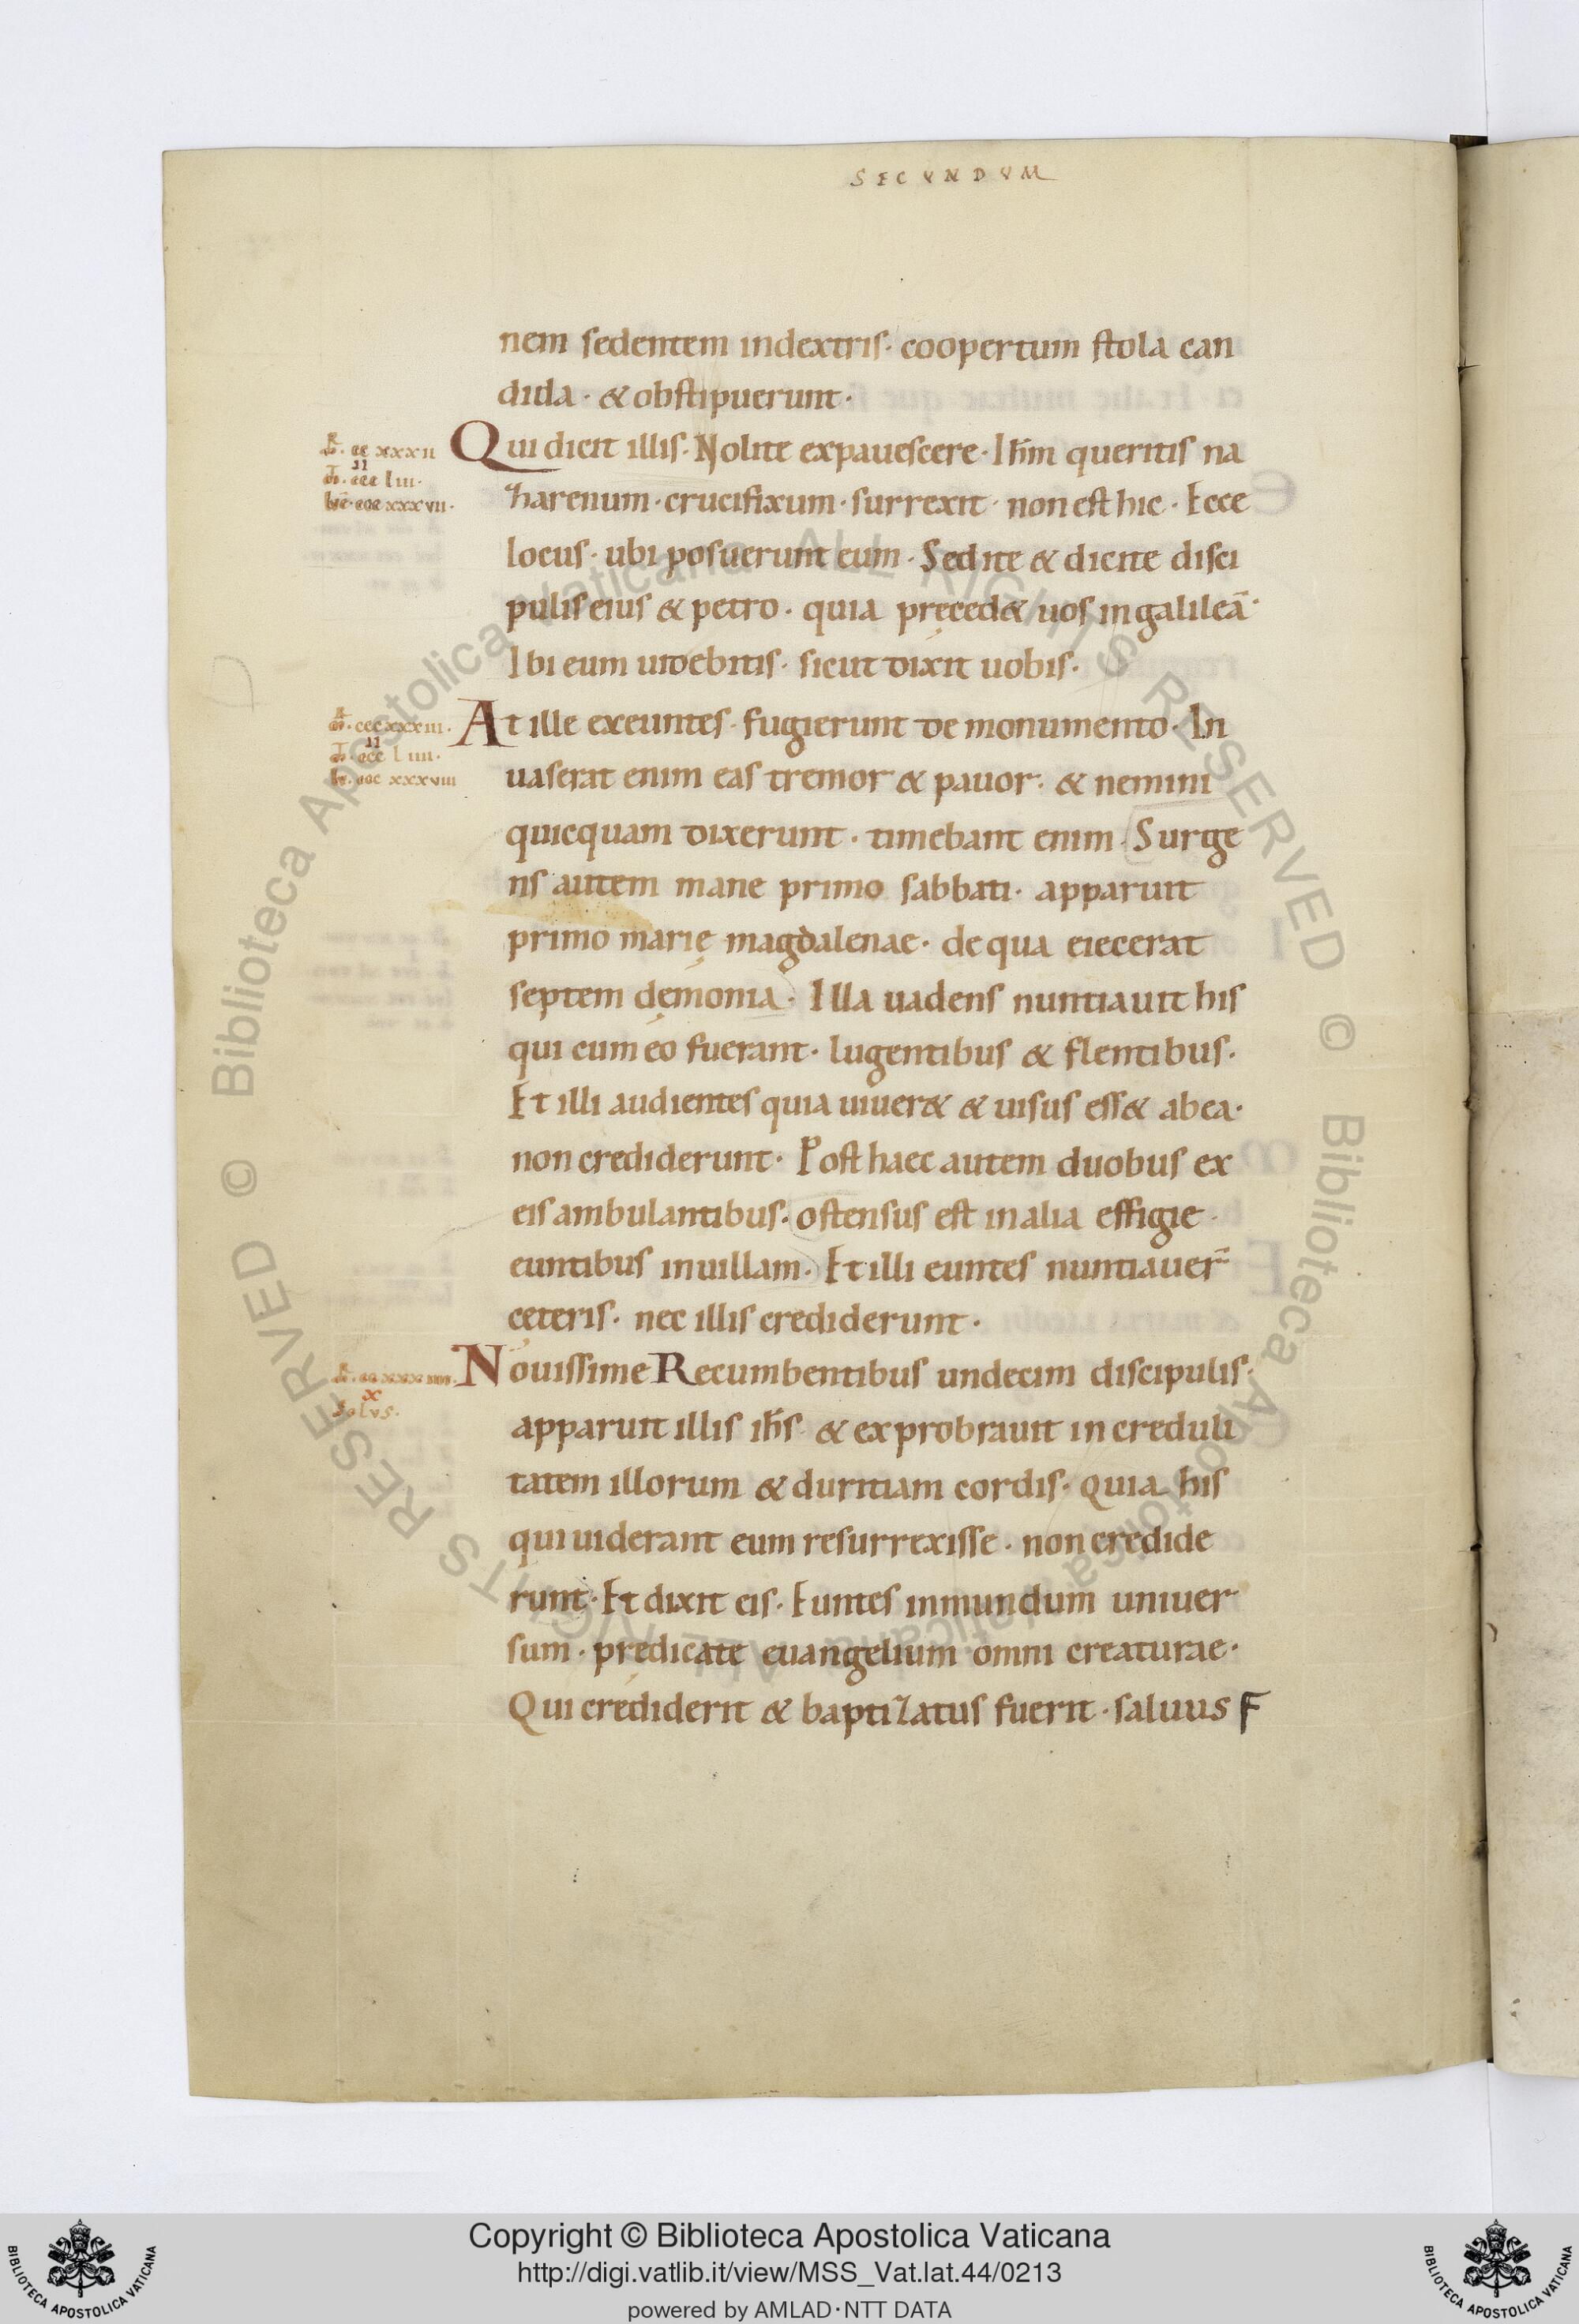 SECUNDUM
nem sedentem indextris· coopertum stola can
dida· & obstipuerunt·
Qui dicit illis· Nolite expauescere· Ihm̄ queritis na
zarenum· crucifixum· surrexit· non est hic· Ecce
locus· ubi posuerunt eum· Sed ite & dicite disci
pulis eius & petro· quia pręced& uos in galileā·
Ibi eum uidebitis· sicut dixit uobis·
At ille exeuntes· fugierunt de monumento· In
uaserat enim eas tremor & pauor· & nemini
quicquam dixerunt· timebant enim· Surge
ns autem mane primo sabbati· apparuit
primo marię magdalenae· de qua eiecerat
septem dęmonia· Illa uadens nuntiauit his
qui cum eo fuerant· lugentibus & flentibus·
Et illi audientes quia uiuer& & uisus ess& ab ea·
non crediderunt· Post haec autem duobus ex
eis ambulantibus· ostensus est in alia effigie
euntibus in uillam· Et illi euntes nuntiauer̄
cęteris· nec illis crediderunt·
Nouissime Recumbentibus undecim discipulis·
apparuit illis ihs̄ & exprobrauit increduli
tatem illorum & duritiam cordis· Quia his
qui uiderant eum resurrexisse· non credide
runt· Et dixit eis· Euntes in mundum uniuer
sum· prędicate euangelium omni creaturae·
Qui crediderit & baptizatus fuerit· saluus F
Copyright © Biblioteca Apostolica Vaticana
http://digi.vatlib.it/view/MSS_Vat.lat.44/0213
powered by AMLAD·NTT DATA